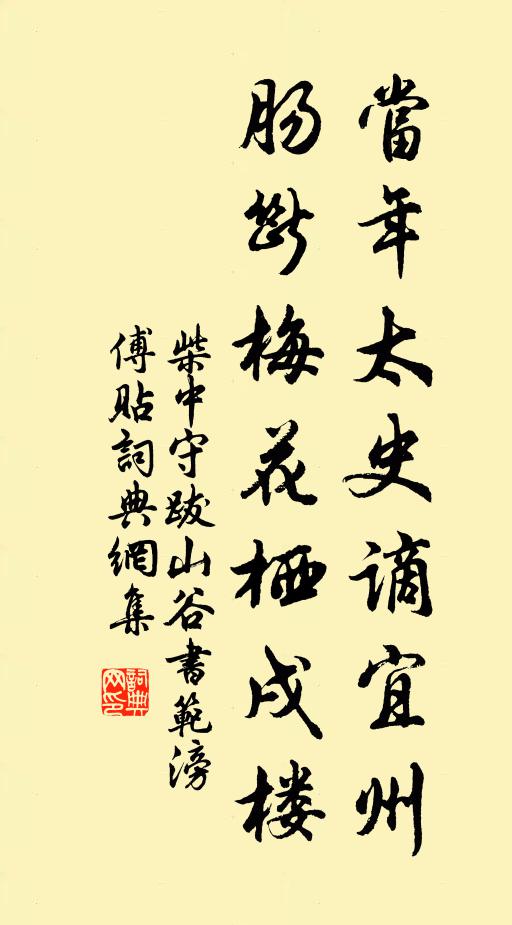 當年太史謫宜州
肠断梅花栖戍楼
柴中守跋山谷書範滂
傅貼詞典網集
詞典网印